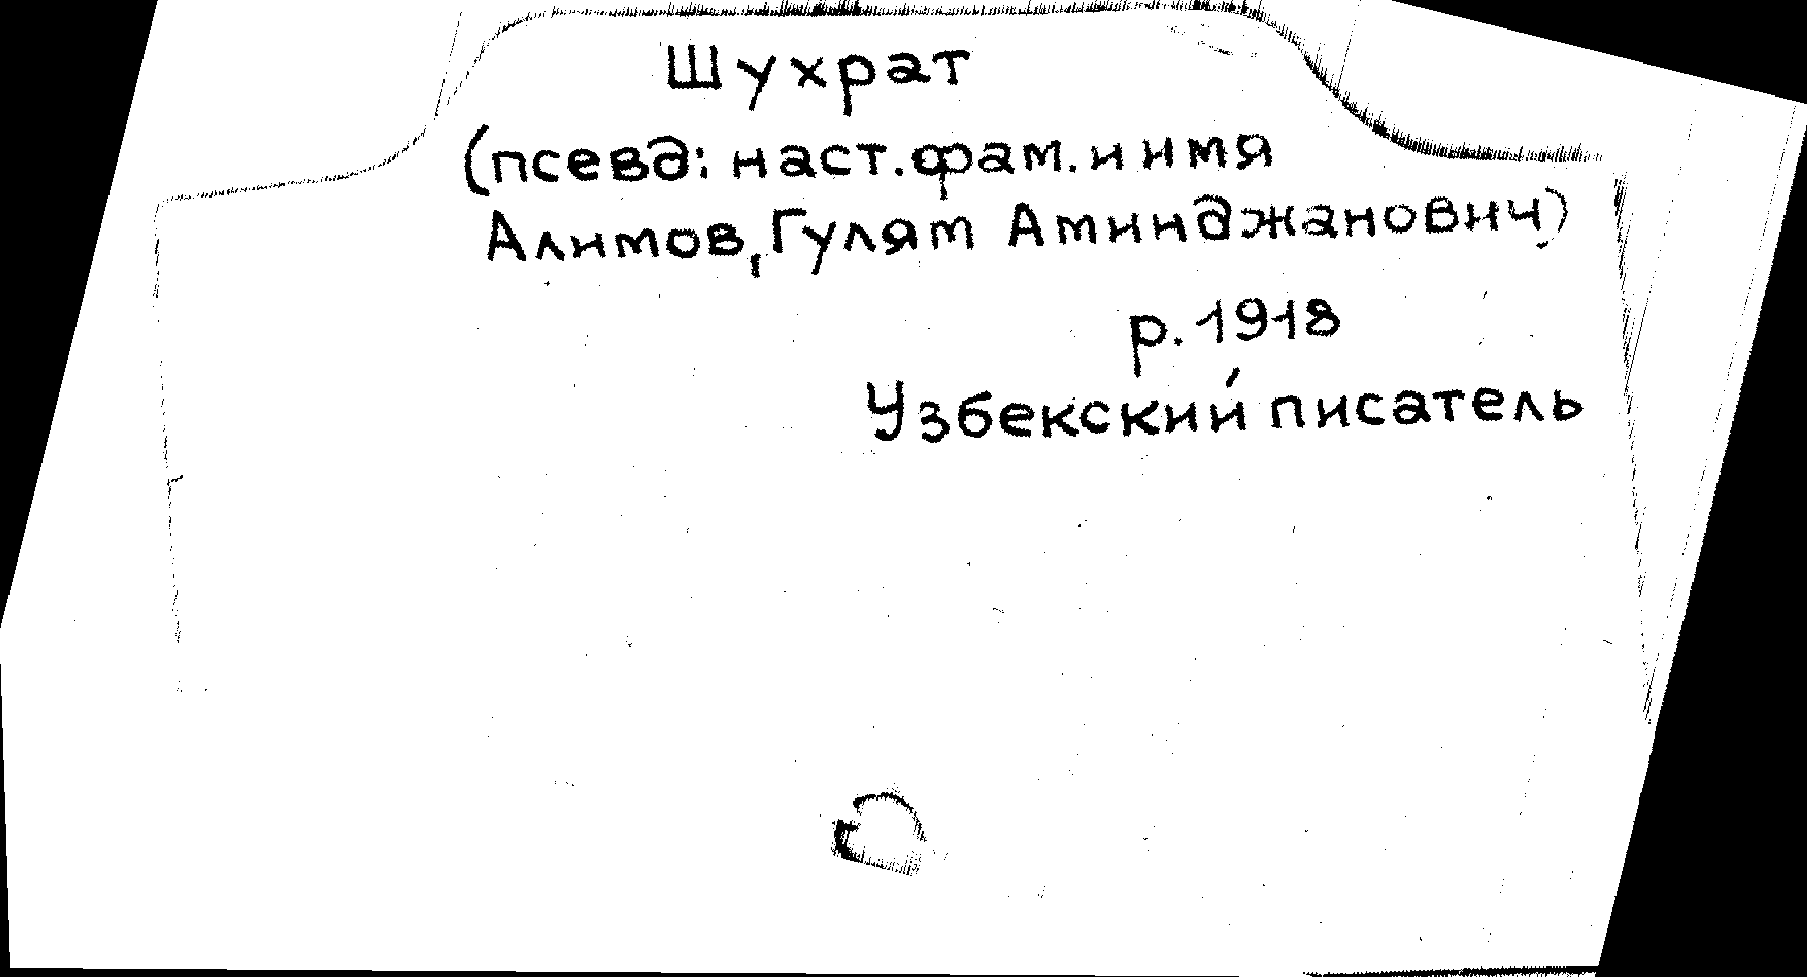 Шухрат
(псевд: наст.фам.и имя
Алимов,Гулям Аминджанович)
р.1918
Узбекский писатель